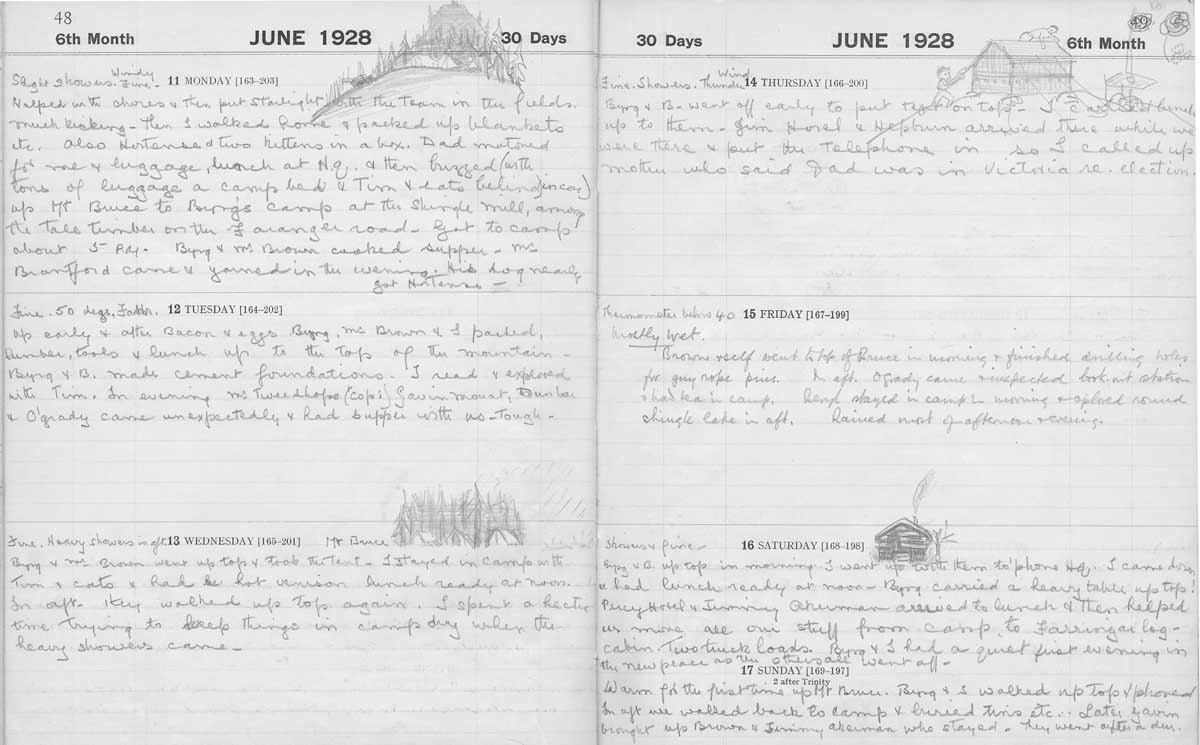 48
6th Month JUNE 1928 30 Days
Slight showers. Windy
Fine.
11 MONDAY [163-203]
Helped with chores & then put Starlight with the Team in the fields.
much kicking - Then I walked home & packed up blankets
etc. also Hortense & two kittens in a box. Dad motored
for me & luggage, lunch at H.Q. & then buzzed (with
tons of luggage a camp bed & Tim & cats behind) in car
up Mt Bruce to Byrg's camp at the Shingle mill, among
the tall timber on the road - Got to camp
about 5 P.M. Byrg & Mr Brown cooked supper - Mr
Brantford came & yarned in the evening. His dog nearly
got Hortense -
Fine. 50 degs. Fahr. 12 TUESDAY [164-202]
up early & after Bacon & eggs Byrg, Mr Brown & I packed,
lumber, tools & lunch up to the top of the mountain -
Byrg & B. made cement foundations. I read & explored
with Tim. In evening Mr Tweedhope (cop!) Gavin Mouat,
& O'grady came unexpectedly & had supper with us - Tough -
Fine. Heavy showers in aft. 13 WEDNESDAY [165-201] Mt Bruce
Byrg & Mr Brown went up top & took the Tent - I stayed in camp with
Tim & cats & had hot venison lunch ready at noon.
In aft. they walked up top again. I spent a hectic
time trying to keep things in camp dry when the
heavy showers came -
49
30 Days JUNE 1928 6th Month
Fine. Showers. Thunder Wind 14 THURSDAY [166-200]
Byrg & B. went off early to put tent on top - I
up to them - Jim Horel & Hepburn arrived there while we
were there & put the Telephone in so I called up
mother who said Dad was in Victoria re. election.
Thermometer below 40 15 FRIDAY [167-199]
Mostly wet.
Brown & self went to top of Bruce in morning & finished drilling holes
for guy rope pins. In aft. Ogrady came & inspected look-out station
& had tea in camp. stayed in camp in morning & explored round
shingle lake in aft. Rained most of afternoon & evening.
Showers & fine - 16 SATURDAY [168-198]
Byrg & B. up top in morning. I went up with them to 'phone H.Q. I came down
& had lunch ready at noon - Byrg carried a heavy table up top!
Percy Hotel & Jimmy Akerman arrived to lunch & then helped
us move all our stuff from camp to log-
cabin. Two truck loads. Byrg & I had a quiet first evening in
the new place as the others all went off -
17 SUNDAY [169-197]
2 after Trinity
Warm for the first time up Mt Bruce. Byrg & I walked up top & phoned
In aft we walked back to camp & buried tins etc.. Later Gavin
brought up Brown & Jimmy Akerman who stayed - They went after a deer.